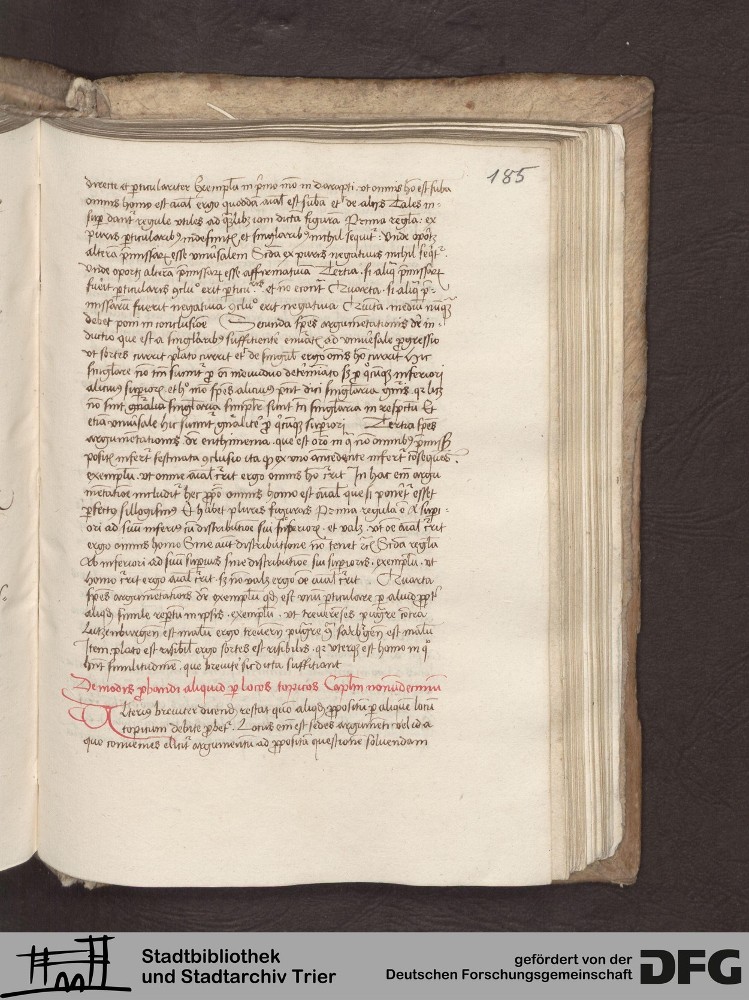 185
directe et particulariter Exemplum in primo modo in darapti. vt omnis homo est substantia
omnis homo est animal ergo quoddam animal est substantia et de alijs Tales in-
super dantur regule vtiles ad quamlibet iam dicta figuram Prima regula: ex
puris particularibus indefinitis et singularibus nichil sequitur: Vnde oportet
alteram premissarum esse vniuersalem Secunda ex puris negatiuis nichil sequitur.
Vnde oportet alteram premissarum esse affirmatiuam Tertia. si aliqua premissarum
fuerit particularis conclusio erit particularis et non econtra Quarta. si aliqua pre-
missarum fuerit negatiua conclusio erit negatiua Quinta. medium nunquam
debet poni in conclusione Secunda species argumentationis dicitur in-
ductio que est a singularibus sufficienter enumeratis ad vniuersale progressio
vt sortes currit plato currit et de singulis ergo omnis homo currit Hic
singulare non tantum sumitur pro indiuiduo determinato sed pro quocunque inferiori
alicuius superioris et hoc modo species alicuius possunt dici singularia generis. quia licet
non sint generalia singularia simpliciter sunt tamen singularia in respectu Et
etiam vniuersale hic sumitur generaliter pro quocunque superiori Tertia species
argumentationis dicitur enthimema. que est oratio in qua non omnibus premissis
positis infertur festinata conclusio ita quod ex vno antecedente infertur consequens.
exemplum. vt omne animal currit ergo omnis homo currit In hac enim argu
mentatione includitur hec propositio omnis homo est animal que si poneretur esset
perfectus sillogismus Et habet plures figuras Prima regula est A superi-
ori ad suum inferius cum distributione sui superioris et valet. vt omne animal currit
ergo omnis homo Sine autem distributione non tenet Secunda regula
Ab inferiori ad suum superius sine distributione sui superioris. exemplum. vt
homo currit ergo animal currit. sed non valet ergo omne animal currit Quarta
species argumentationis dicitur exemplum quod est vnum particulare per aliud propter
aliquod simile repertum in ipsis. exemplum. vt treuerenses pugnare contra
Lutzenburgen est malum ergo treueren pugnare contra sarburgen est malum
Item plato est risibilis ergo sortes est risibilis. quia vterque est homo in quo
habent similitudinem. que breuiter sic dicta sufficiant
De modis probandi aliquid per locos topicos Capitulum nonumdecimum
Vlterius breuiter dicendum restat quomodo aliquod propositum per aliquem locum
topicum debite probetur. Locus enim est sedes argumenti vel id a
quo conuenienter elicitur argumentum ad propositam questionem soluendam
Stadtbibliothek
und Stadtarchiv Trier
gefördert von der
Deutschen Forschungsgemeinschaft
DFG